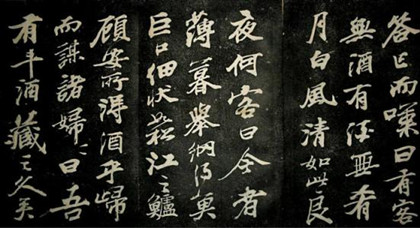 答已而嘆曰有客
無酒有酒無肴
月白風清如此良
夜何客曰今者
薄暮舉網得魚
巨口細狀似松江之鱸
顧安所得酒乎歸
而謀諸婦〻曰吾
有斗酒藏之久矣